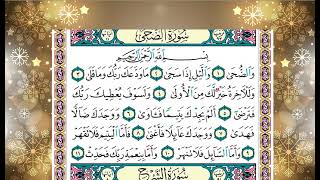 سُورَةُ الضُّحَىٰ
بِسْمِ اللَّهِ الرَّحْمَٰنِ الرَّحِيمِ
وَالضُّحَىٰ ١ وَاللَّيْلِ إِذَا سَجَىٰ ٢ مَا وَدَّعَكَ رَبُّكَ وَمَا قَلَىٰ ٣
وَلَلْآخِرَةُ خَيْرٌ لَّكَ مِنَ الْأُولَىٰ ٤ وَلَسَوْفَ يُعْطِيكَ رَبُّكَ
فَتَرْضَىٰ ٥ أَلَمْ يَجِدْكَ يَتِيمًا فَآوَىٰ ٦ وَوَجَدَكَ ضَالًّا
فَهَدَىٰ ٧ وَوَجَدَكَ عَائِلًا فَأَغْنَىٰ ٨ فَأَمَّا الْيَتِيمَ فَلَا تَقْهَرْ
٩ وَأَمَّا السَّائِلَ فَلَا تَنْهَرْ ١٠ وَأَمَّا بِنِعْمَةِ رَبِّكَ فَحَدِّثْ ١١
سُورَةُ الشَّرْحِ